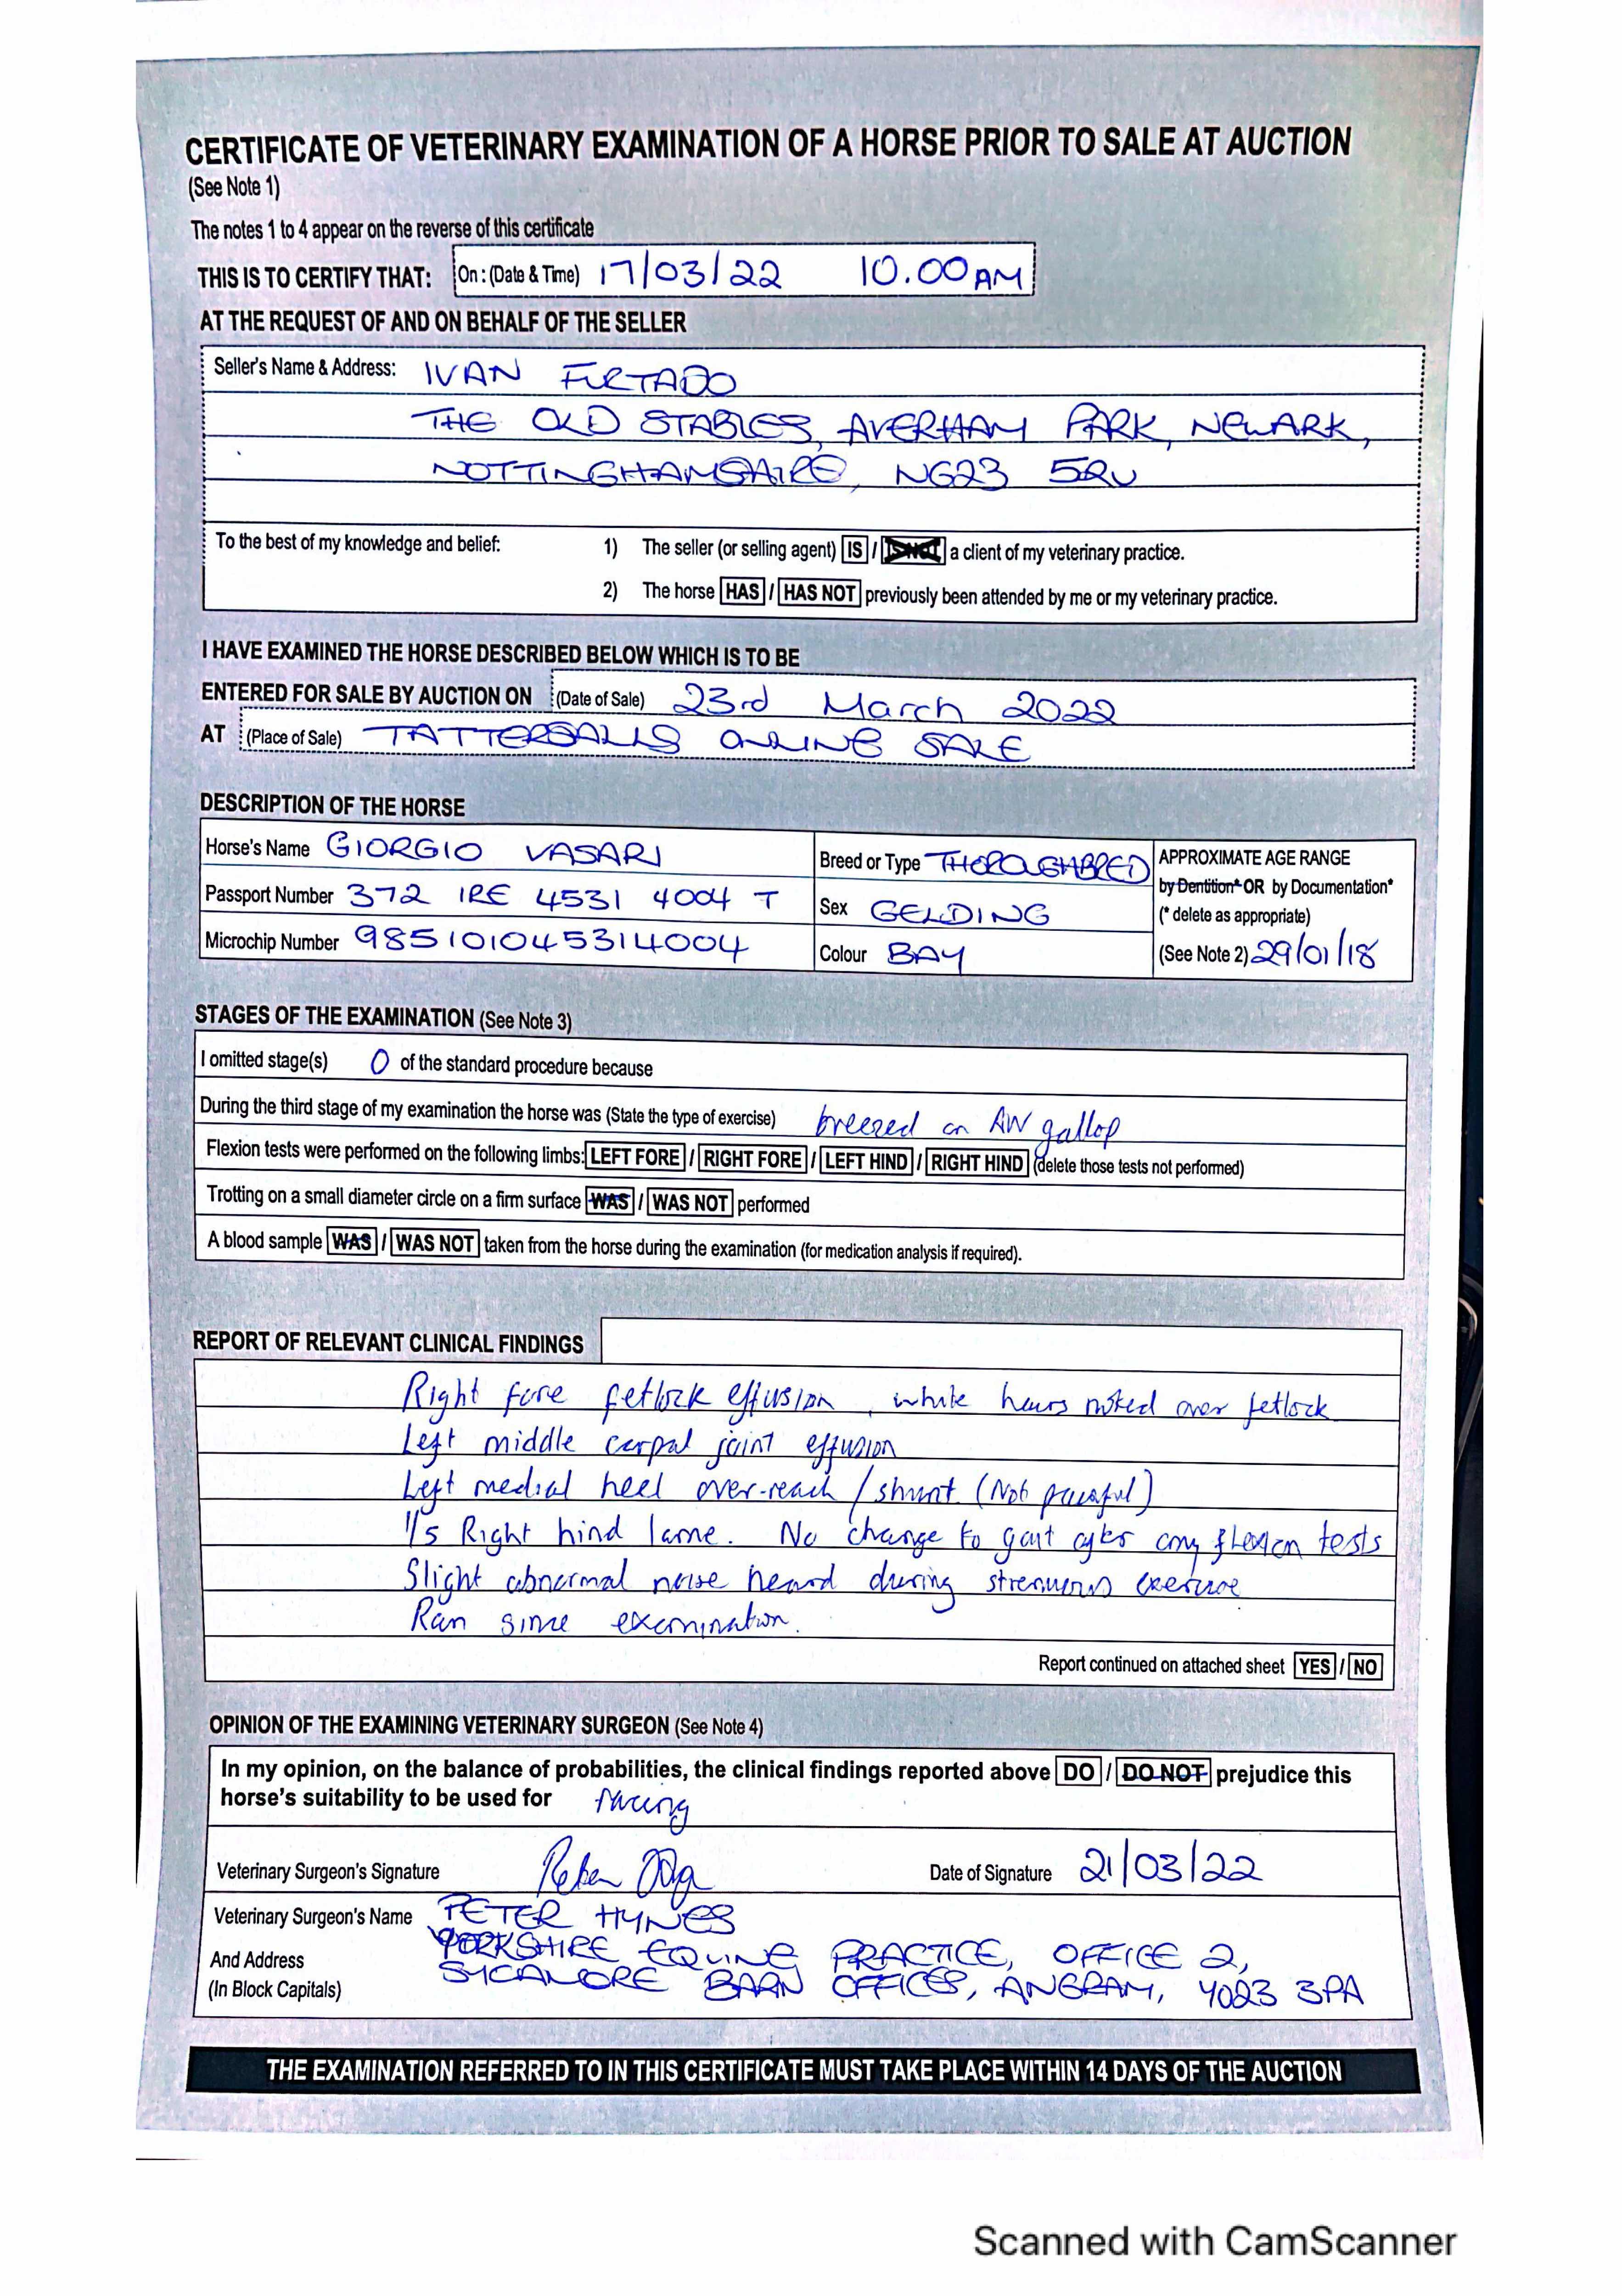 CERTIFICATE OF VETERINARY EXAMINATION OF A HORSE PRIOR TO SALE AT AUCTION
(See Note 1)
The notes 1 to 4 appear on the reverse of this certificate
THIS IS TO CERTIFY THAT: On : (Date & Time) 17/03/22 10.00AM
AT THE REQUEST OF AND ON BEHALF OF THE SELLER
Seller's Name & Address: IVAN FURTADO
THE OLD STABLES, AVERHAM PARK, NEWARK,
NOTTINGHAMSHIRE, NG23 5RU
To the best of my knowledge and belief: 1) The seller (or selling agent) IS / IS NOT a client of my veterinary practice.
2) The horse HAS / HAS NOT previously been attended by me or my veterinary practice.
I HAVE EXAMINED THE HORSE DESCRIBED BELOW WHICH IS TO BE
ENTERED FOR SALE BY AUCTION ON (Date of Sale) 23rd March 2022
AT (Place of Sale) TATTERSALLS ONLINE SALE
DESCRIPTION OF THE HORSE
Horse's Name GIORGIO VASARI
Passport Number 372 IRE 4531 4004 T
Microchip Number 985101045314004
Breed or Type THOROUGHBRED
Sex GELDING
Colour BAY
APPROXIMATE AGE RANGE
by Dentition* OR by Documentation*
(* delete as appropriate)
(See Note 2) 29/01/18
STAGES OF THE EXAMINATION (See Note 3)
I omitted stage(s) 0 of the standard procedure because
During the third stage of my examination the horse was (State the type of exercise) breezed on AW gallop
Flexion tests were performed on the following limbs: LEFT FORE / RIGHT FORE / LEFT HIND / RIGHT HIND (delete those tests not performed)
Trotting on a small diameter circle on a firm surface WAS / WAS NOT performed
A blood sample WAS / WAS NOT taken from the horse during the examination (for medication analysis if required).
REPORT OF RELEVANT CLINICAL FINDINGS
Right fore fetlock effusion, white hairs noted over fetlock
Left middle carpal joint effusion
Left medial heel over-reach / shunt (Not painful)
1/5 Right hind lame. No change to gait after any flexion tests
Slight abnormal noise heard during strenuous exercise
Ran since examination.
Report continued on attached sheet YES / NO
OPINION OF THE EXAMINING VETERINARY SURGEON (See Note 4)
In my opinion, on the balance of probabilities, the clinical findings reported above DO / DO NOT prejudice this
horse's suitability to be used for racing
Veterinary Surgeon's Signature
Date of Signature 21/03/22
Veterinary Surgeon's Name PETER HYNES
And Address YORKSHIRE EQUINE PRACTICE, OFFICE 2,
(In Block Capitals) SYCAMORE BARN OFFICES, ANGRAM, YO23 3PA
THE EXAMINATION REFERRED TO IN THIS CERTIFICATE MUST TAKE PLACE WITHIN 14 DAYS OF THE AUCTION
Scanned with CamScanner